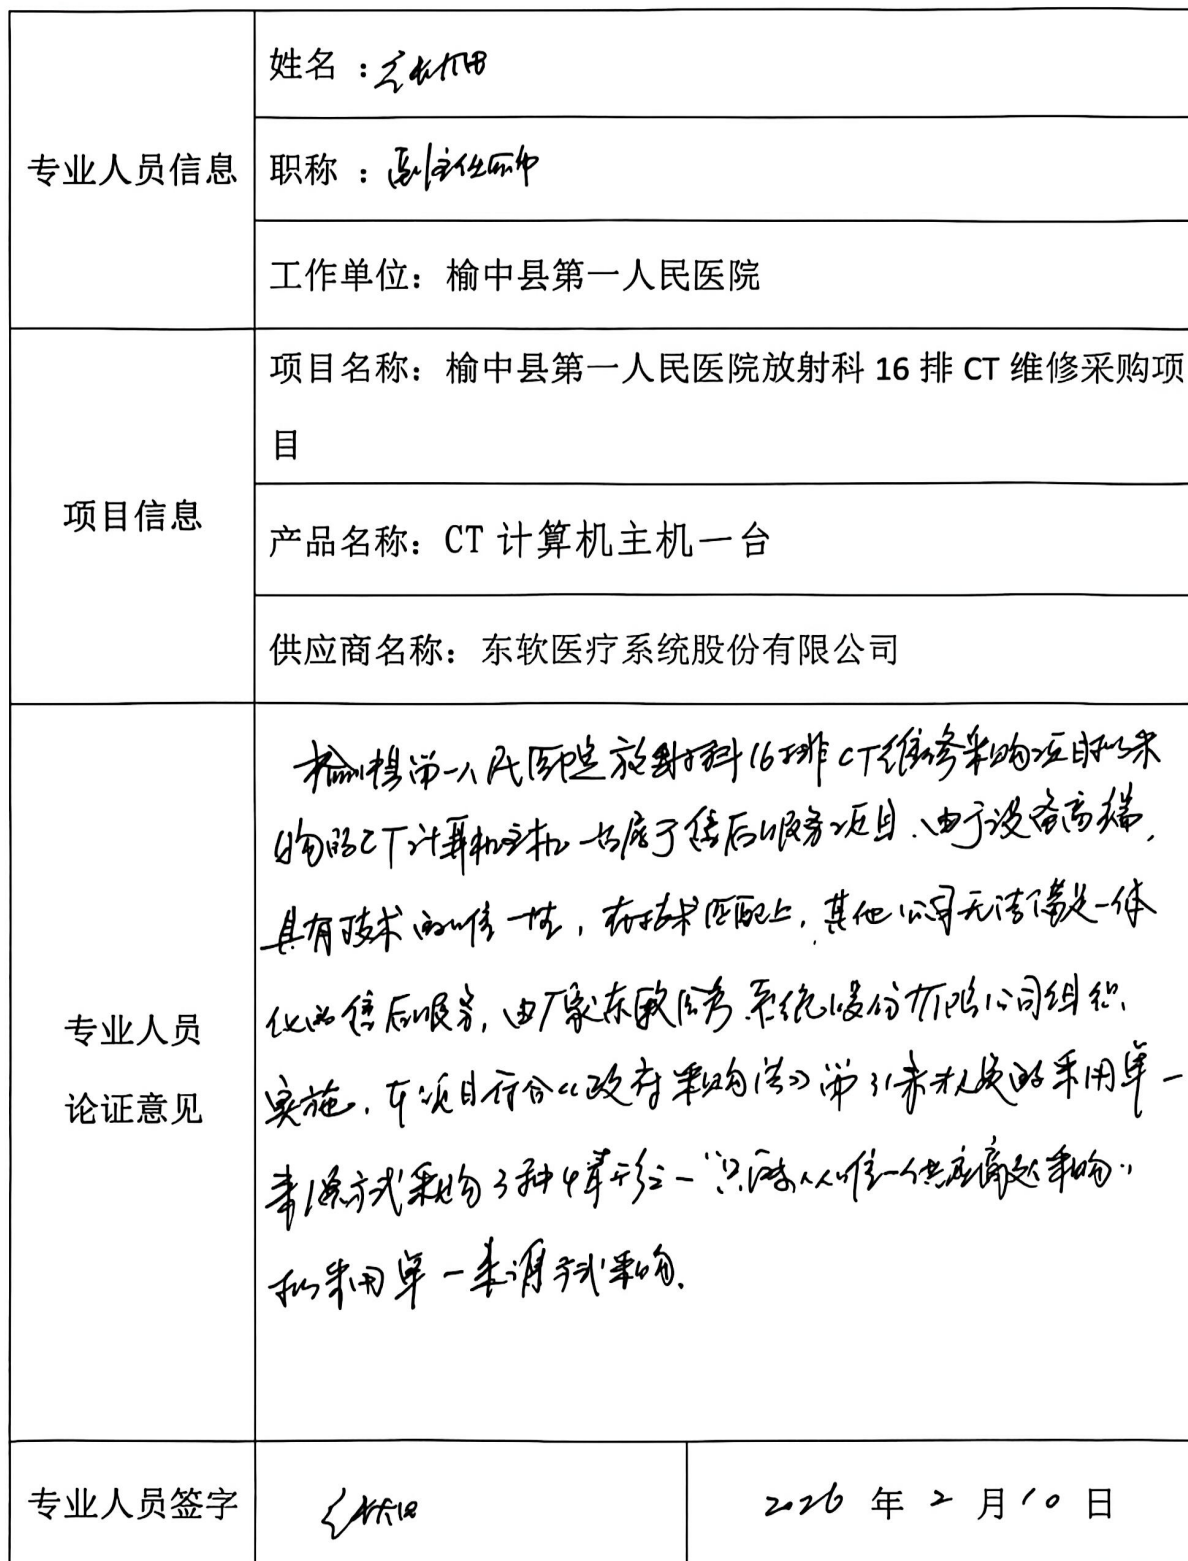 姓名：
专业人员信息
职称：副主任医师
工作单位：榆中县第一人民医院
项目名称：榆中县第一人民医院放射科 16 排 CT 维修采购项
目
项目信息
产品名称：CT 计算机主机一台
供应商名称：东软医疗系统股份有限公司
榆中县第一人民医院放射科16排CT维修采购项目拟采
购的CT计算机主机一台属于售后服务项目.由于设备高端,
具有技术的唯一性,在技术匹配上,其他公司无法满足一体
化的售后服务,由厂家东软医疗系统股份有限公司组织、
专业人员
论证意见
实施.本项目符合《政府采购法》第31条规定的采用单一
来源方式采购3种情形之一"只能从唯一供应商处采购"
拟采用单一来源方式采购.
专业人员签字
2026 年 2 月 10 日